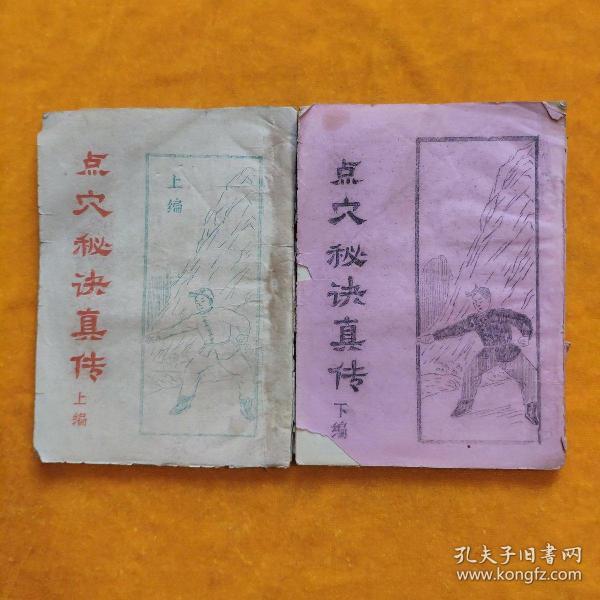 点穴秘诀真传
上编
上编
点穴秘诀真传
下编
孔夫子旧书网
www.kongfz.com